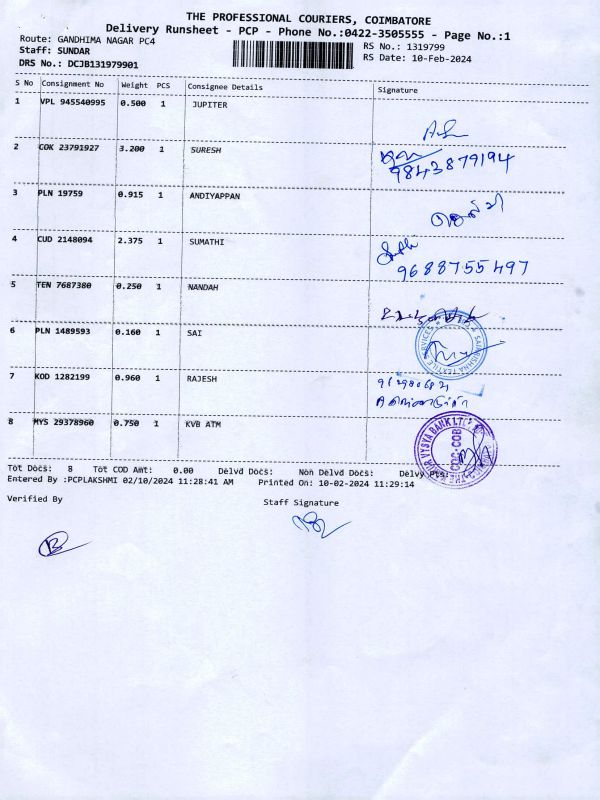 THE PROFESSIONAL COURIERS, COIMBATORE
Delivery Runsheet - PCP - Phone No.:0422-3505555 - Page No.:1
Route: GANDHIMA NAGAR PC4 RS No.: 1319799
Staff: SUNDAR RS Date: 10-Feb-2024
DRS No.: DCJB131979901
S No Consignment No Weight PCS Consignee Details Signature
1 VPL 945540995 0.500 1 JUPITER
2 COK 23791927 3.200 1 SURESH
9843879194
3 PLN 19759 0.915 1 ANDIYAPPAN
4 CUD 2148094 2.375 1 SUMATHI
9688755497
5 TEN 7687380 0.250 1 NANDAH
6 PLN 1489593 0.160 1 SAI
7 KOD 1282199 0.960 1 RAJESH
8 MYS 29378960 0.750 1 KVB ATM
Tot Docs: 8 Tot COD Amt: 0.00 Delvd Docs: Non Delvd Docs: Delvy Pts:
Entered By :PCPLAKSHMI 02/10/2024 11:28:41 AM Printed On: 10-02-2024 11:29:14
Verified By Staff Signature